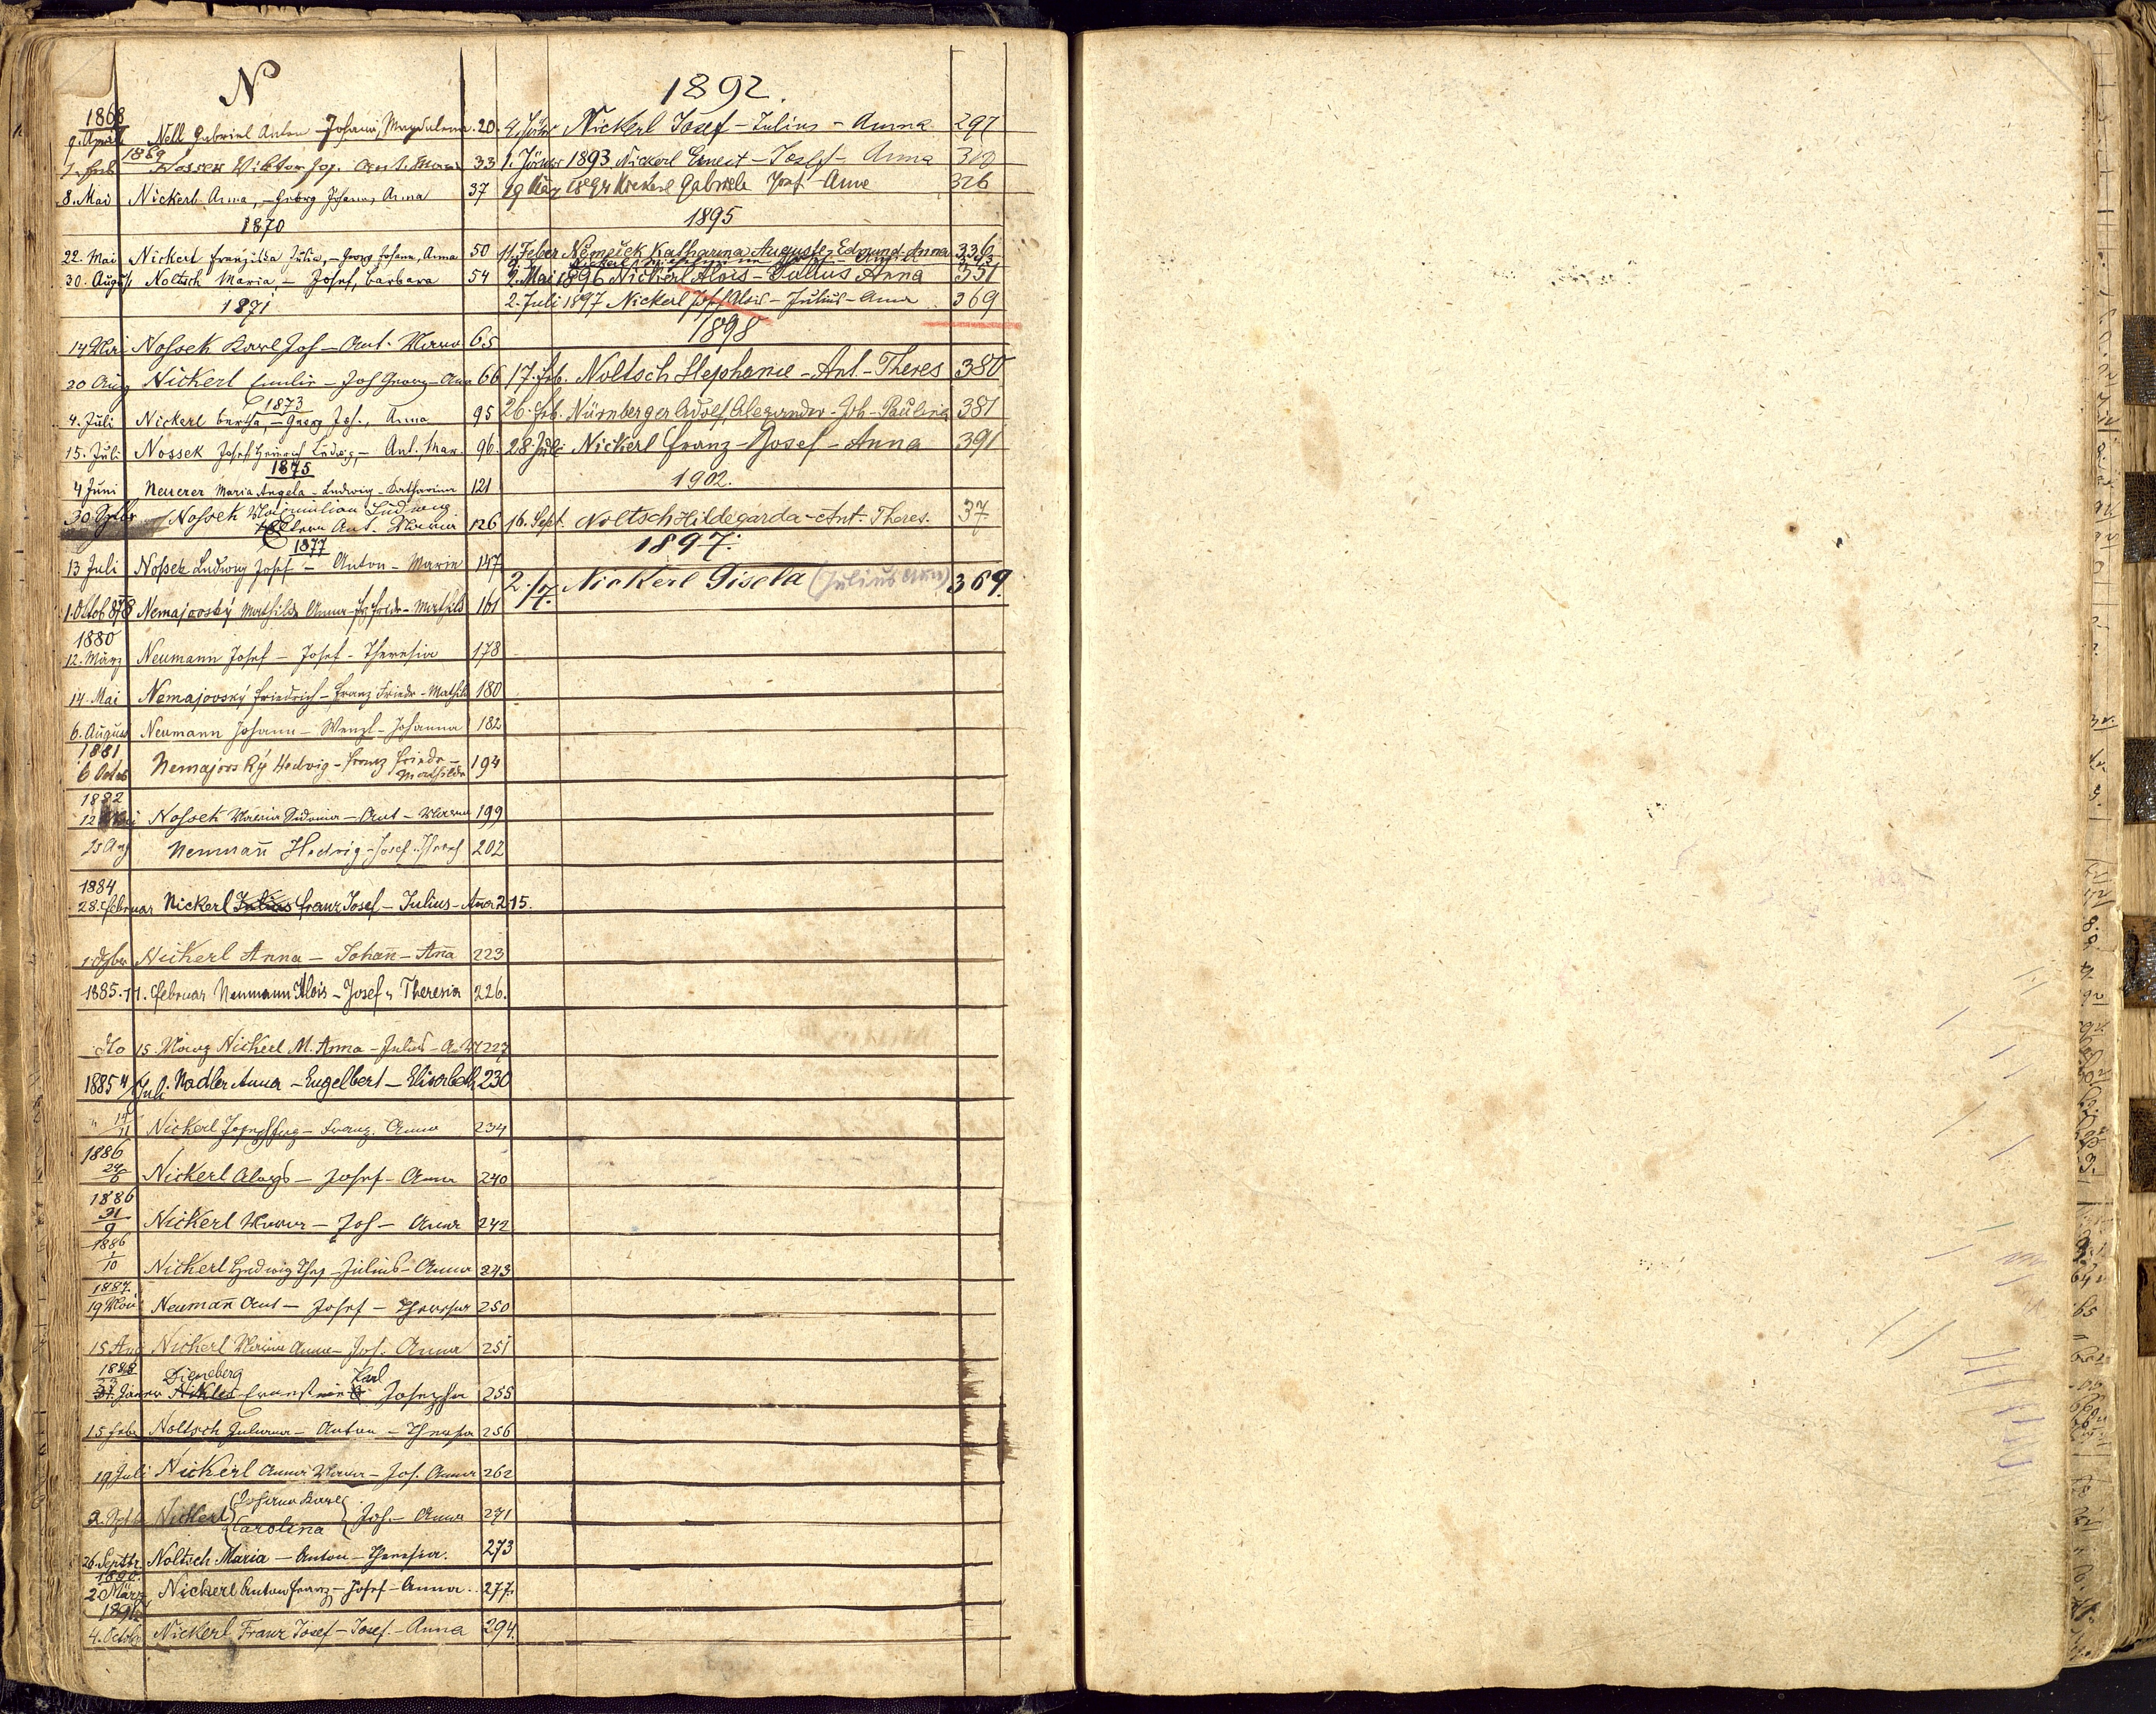 N
1868
9. April Nell Gabriel Anton Johann, Magdalena 20
1869
7. Feb Nossek Viktor Jos. Ant. Maria 33
8. Mai Nickerl Anna, – Georg Johann, Anna 37
1870
22. Mai Nickerl Franziska Julia, – Georg Johann, Anna 50
30. August Noltsch Maria – Josef, Barbara 54
1871
14 Mai Noßek Karl Jos – Ant. Maria 65
20 Aug Nickerl Emilie – Joh Georg – Anna 66
1873
4. Juli Nickerl Bertha – Georg Joh., Anna 95
15. Juli Nossek Josef Heinrich Ludwig, – Ant. Mar. 96
1875
4 Juni Neuerer Maria Angela – Ludwig – Katharina 121
30 Noßek Maximilian Ludwig
Eltern Ant. Maria 126
1877
13 Juli Noßek Ludwig Josef – Anton – Marie 147
1. Octob 878 Nemajovský Mathilde Anna – Fz Friedr – Mathild 161
1880
12. März Neumann Josef – Josef – Theresia 178
14. Mai Nemajovský Friedrich – Franz Friedr – Mathild 180
6. August Neumann Johann – Wenzl – Johanna 182
1881
6 Octob Nemajovský Hedwig – Franz Friedr –
Mathilde 194
1882
12 Mai Noßek Maria Sidonia – Ant – Maria 199
25 Aug Neumañ Hedwig – Josef Theres 202
1884
28. Februar Nickerl Julius Franz Josef – Julius – Anna 215.
Nickerl Anna – Johañ – Aña 223
1885. 11. Februar Neumann Alois – Josef u Theresia 226.
dto 15. März Nickerl M. Anna – Julius – 227
1885 4/ Juli. Nadler Anna – Engelbert – Elisabeth 230
" 14/11 Nickerl – Franz. Anna 234
1886
Nickerl Aloys – Josef – Anna 240
1886
21/9 Nickerl Maria – Jos – Anna 242
1886
1/10 Nickerl Hedwig Ther – Julius – Anna 243
1887.
19 Mai Neumañ Ant – Josef – Theresia 250
15 Aug Nickerl Maria Anna – Jos. Anna 251
1888
Dieneberg Karl
Jänner Nikles Ernestine Josepha 255
15 Febr Noltsch Juliana – Anton – Theresia 256
19 Juli Nickerl Anna Maria – Jos. Anna 262
2. Nickerl {Johann Karl
Carolina} Jos. – Anna 271
26. Septbr Noltsch Maria – Anton – Theresia. 273
1890.
20 März Nickerl Anton Franz – Josef – Anna. 277.
1891
4. October Nickerl Franz Josef – Josef. – Anna 294.
1892.
9. Jänner Nickerl Josef – Julius – Anna. 297
1. Jänner 1893 Nickerl Ernest – Josef – Anna 310
29 März 1894 Nickerl Gabriele Josef – Anna 326
1895
11. Feber Němeček Katharina Auguste, Edmund – Anna 336
Nickerl
2. Mai 1896 Nickerl Alois – Julius Anna 351
2. Juli 1897 Nickerl Alois – Julius – Anna 369
1898
17. Feb. Noltsch Stephanie – Ant. – Theres 380
26. Feb. Nürnberger Adolf, Alexander – Joh – Paulina 381
28 Juli Nickerl Franz – Josef – Anna 391
1902.
16. Sept. Noltsch Hildegarda – Ant. Theres. 37.
1897.
2./7. Nickerl Gisela (Julius Anna) 369.